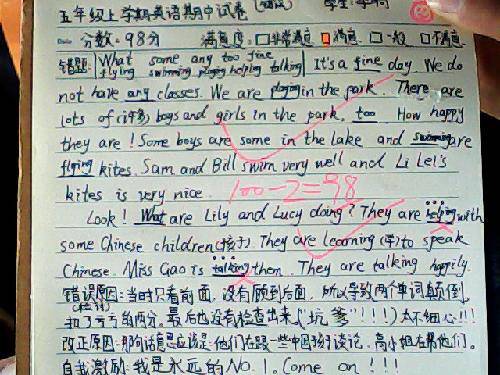 五年级上学期英语期中试卷 学生:
分数:98分 满意度:□非常满意 □满意 □一般 □不满意
错题: What some any too fine
flying swimming playing helping talking It's a fine day. We do
not have any classes. We are playing in the park. There are
lots of(许多) boys and girls in the park, too. How happy
they are! Some boys are some in the lake and swimming are
flying kites. Sam and Bill swim very well and Li Lei's
kites is very nice. 100-2=98
Look! What are Lily and Lucy doing? They are helping with
some Chinese children(孩子). They are learning(学) to speak
Chinese. Miss Gao is talking them. They are talking happily.
错误原因:当时只看前面,没有顾到后面,所以导致两个单词颠倒,
扣了亏亏的两分。最后也没有检查出来("坑爹"!!!)太不细心!!!
改正原因:那句话意思应该是:他们在跟一些中国孩子谈论,高小姐在帮他们。
自我激励:我是永远的No.1. Come on!!!